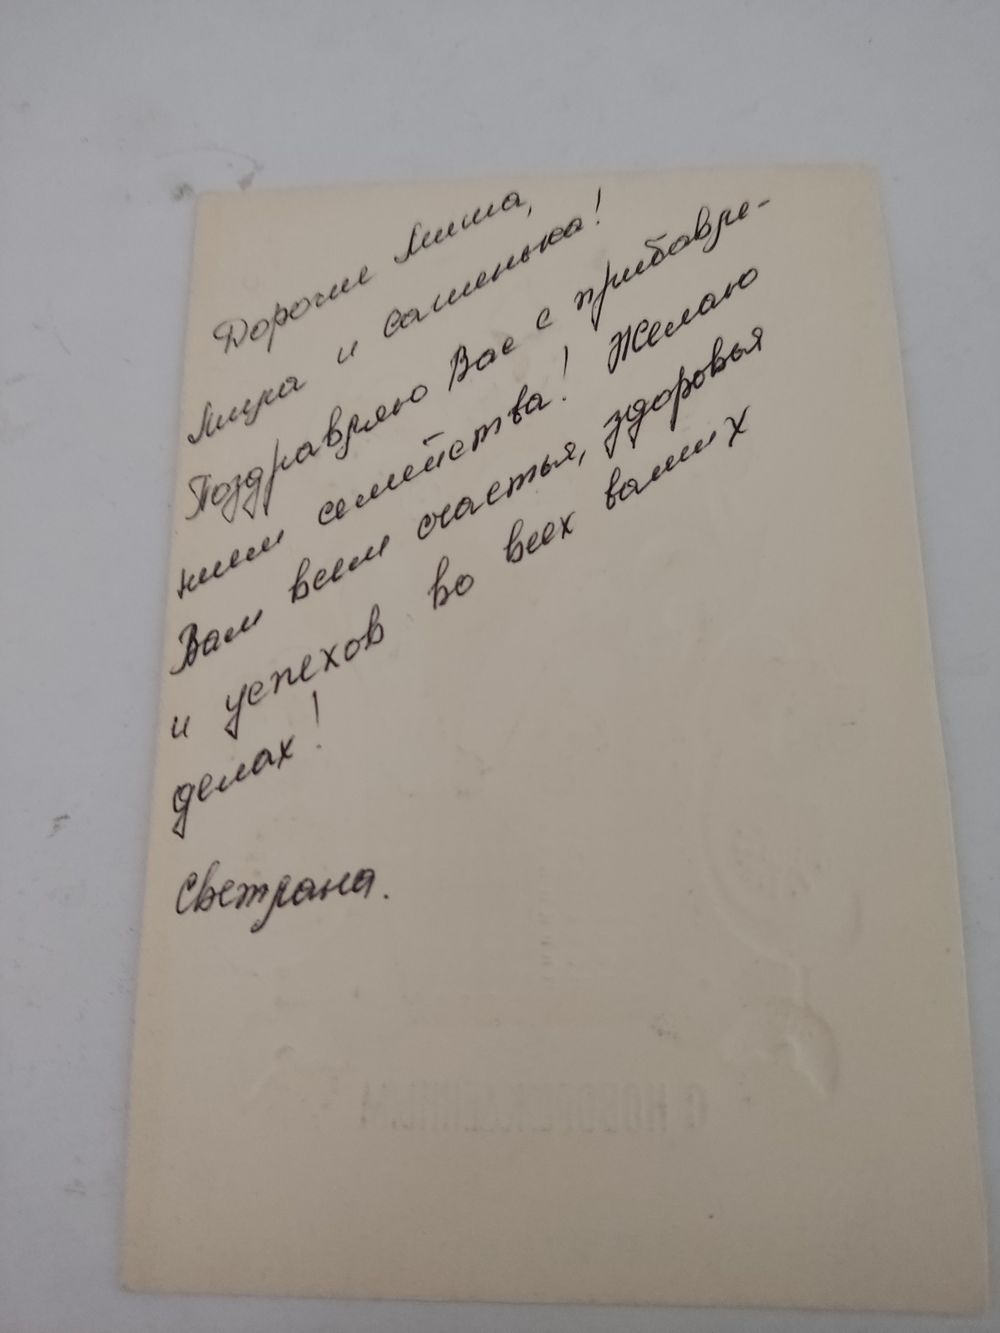 Дорогие Миша,
Мира и Сашенька!
Поздравляю Вас с прибавле-
нием семейства! Желаю
Вам всем счастья, здоровья
и успехов во всех ваших
делах!
Светлана.
С НОВОРОЖДЕННЫМ